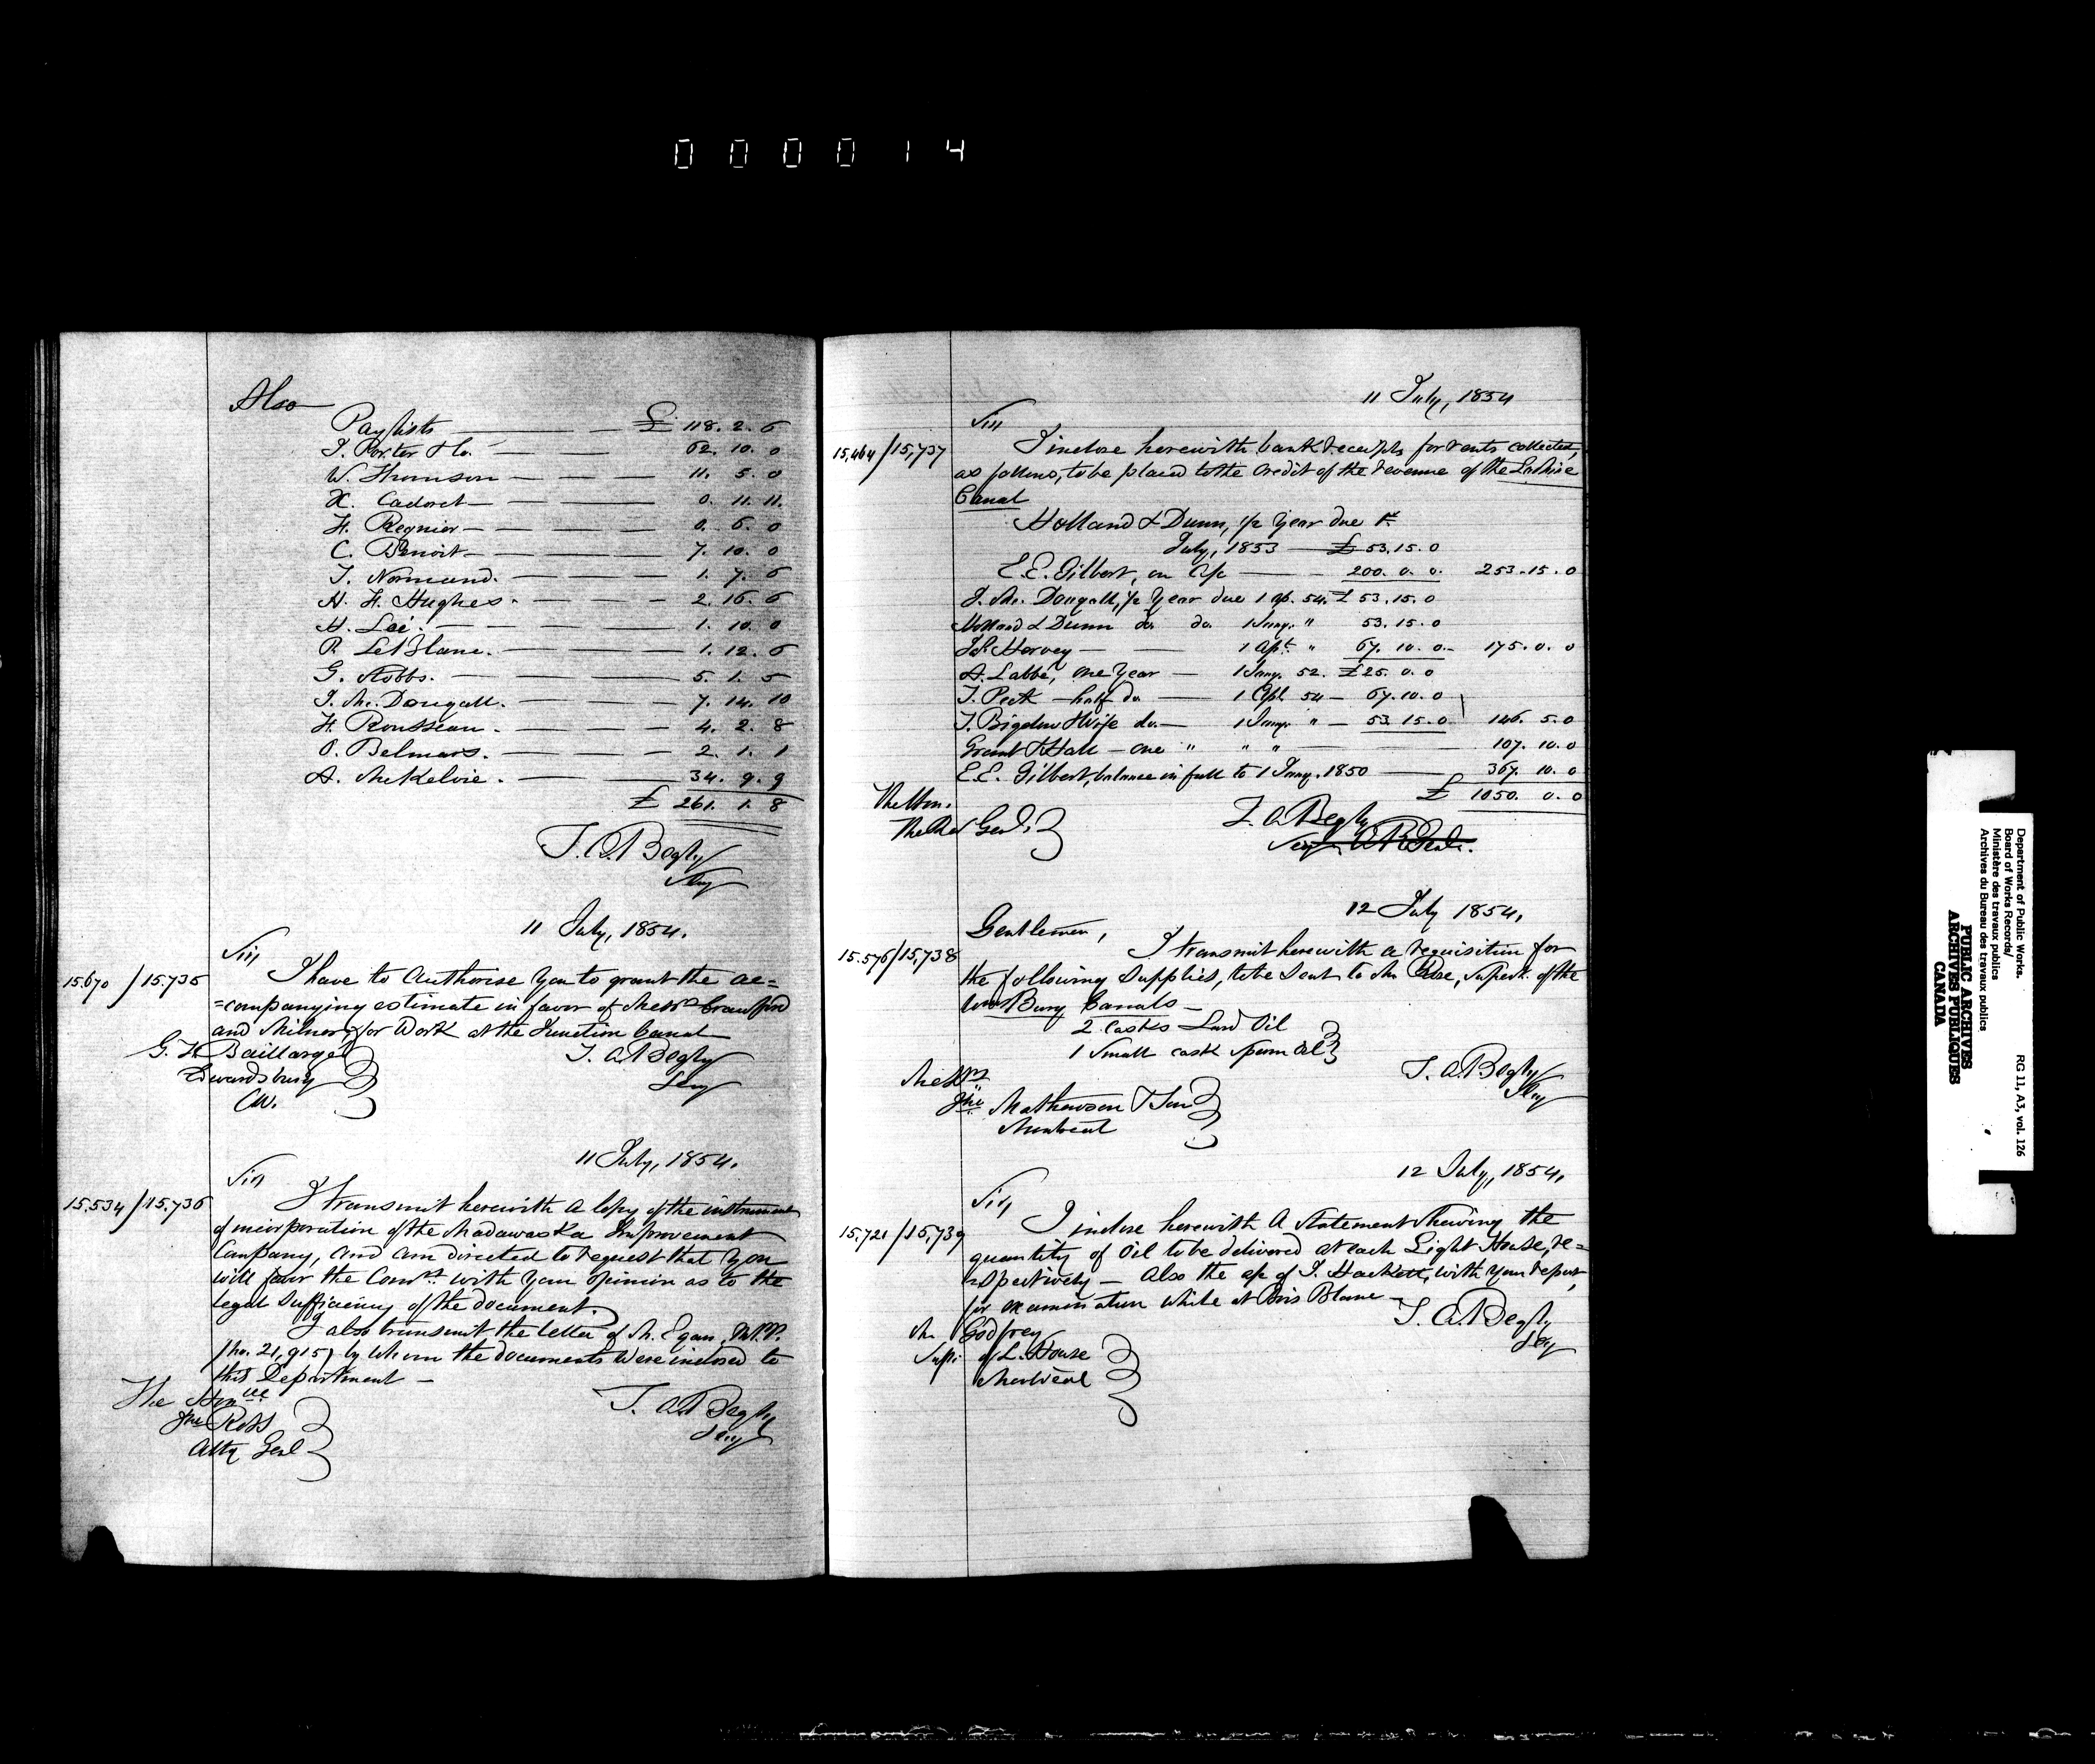 000014
Also
Paylists £ 118. 2. 6
J. Porter & Co. 62. 10. 0
W. Thomson 11. 5. 0
X. Cadoret 0. 11. 11.
H. Regnier 0. 6. 0
C. Benoit 7. 10. 0
T. Normand. 1. 7. 6
H. H. Hughes. 2. 16. 6
H. Lee. 1. 10. 0
P. LeBlanc. 1. 12. 6
G. Stobbs. 5. 1. 5
J. McDougall. 7. 14. 10
H. Rousseau. 4. 2. 8
O. Belmars. 2. 1. 1
A. McKelvie. 34. 9. 9
£ 261. 1. 8
T. A. Begly
Secy
11 July, 1854.
Sir,
15.670 / 15.735
I have to authorise you to grant the ac=
=companying estimate in favor of Messrs Crawford
and Milner, for work at the Junction Canal
G. F. Baillargé
Edwardsburg
C.W.
T. A. Begly
Secy
11 July, 1854.
Sir,
15.534 / 15.736
I transmit herewith a copy of the instrument
of incorporation of the Madawaska Improvement
Company, and am directed to request that you
will favor the Comrs. with your opinion as to the
legal sufficiency of the document.
I also transmit the letter of Mr. Egan, M.P.P.
(no. 21,915) by whom the documents were inclosed to
this Department —
The Honble
Jno Ross
Atty Genl
T. A. Begly
Secy
11 July, 1854
Sir
15,464 / 15,737
I inclose herewith bank receipts for rents collected,
as follows, to be placed to the credit of the revenue of the Lachine
Canal
Holland & Dunn, 1/2 year due 1st
July, 1853 £ 53. 15. 0
E. E. Gilbert, on a/c 200. 0. 0. 253. 15. 0
J. McDougall, 1/2 year due 1 Ap. 54. £ 53. 15. 0
Holland & Dunn do. do. 1 Jany. " 53. 15. 0
Harvey 1 Apl. " 67. 10. 0 175. 0. 0
A. Labbé, one year 1 Jany. 52. £25. 0. 0
T. Peck — half do 1 Apl. 54 67. 10. 0
J. Bigelow & Wife do. 1 Jany. " 53. 15. 0 146. 5. 0
Grant & Hall — one " " " 107. 10. 0
E. E. Gilbert, balance in full to 1 Jany. 1850 367. 10. 0
£ 1050. 0. 0
The Hon.
The Genl.
T. A. Begly
Secy
12 July 1854,
Gentlemen,
15.576 / 15,738
I transmit herewith a requisition for
the following supplies, to be sent to Mr Rose, Supert. of the
Wmsburg Canals —
2 casks Lard Oil
1 small cask sperm oil
T. A. Begly
Secy
Messrs
Jno Mathewson & Son
Montreal
12 July, 1854,
Sir,
15,721 / 15,739
I inclose herewith a statement shewing the
quantity of oil to be delivered at each Light House, re=
=spectively — also the a/c of J. Hackett, with your report,
for examination while at Bois Blanc —
T. A. Begly
Secy
Mr Godfrey
Supt. of L. House
Montreal
Department of Public Works.
Board of Works Records/
Ministère des travaux publics
Archives du Bureau des travaux publics
RG 11, A3, vol. 126
PUBLIC ARCHIVES
ARCHIVES PUBLIQUES
CANADA